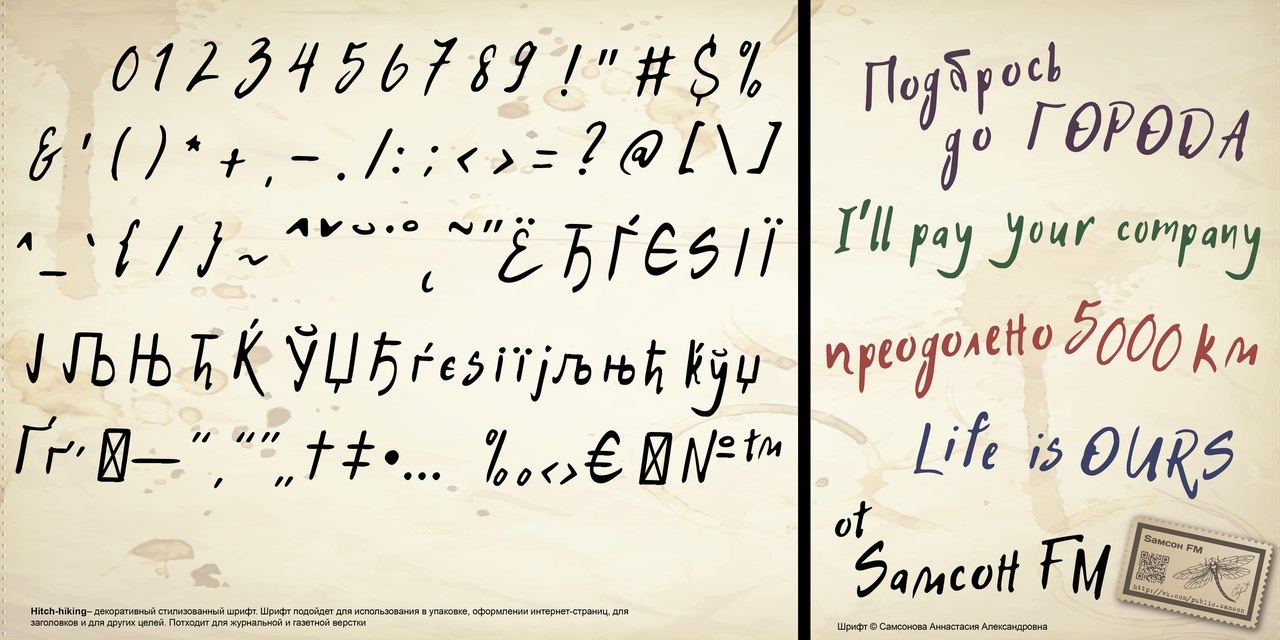 0 1 2 3 4 5 6 7 8 9 ! " # $ %
& ' ( ) * + , - . / : ; < > = ? @ [ \ ]
^ _ ` { / } ~ ^ ˇ ˘ ˙ ° ˛ ~ ˝ Ё Ђ Ѓ Є Ѕ І Ї
Ј Љ Њ Ћ Ќ Ў Џ Ђ ѓ є ѕ і ї ј љ њ ћ ќ ў џ
Ґ ґ ’ — ” ‚ “ ” „ † ‡ • … ‰ ‹ › € № ™
Hitch-hiking– декоративный стилизованный шрифт. Шрифт подойдет для использования в упаковке, оформлении интернет-страниц, для
заголовков и для других целей. Потходит для журнальной и газетной верстки
Подбрось
до ГОРОДА
I'll pay your company
преодолено 5000 км
Life is OURS
от
Sамсон FM
Sамсон FM
http://vk.com/public.samson
Шрифт © Самсонова Аннастасия Александровна